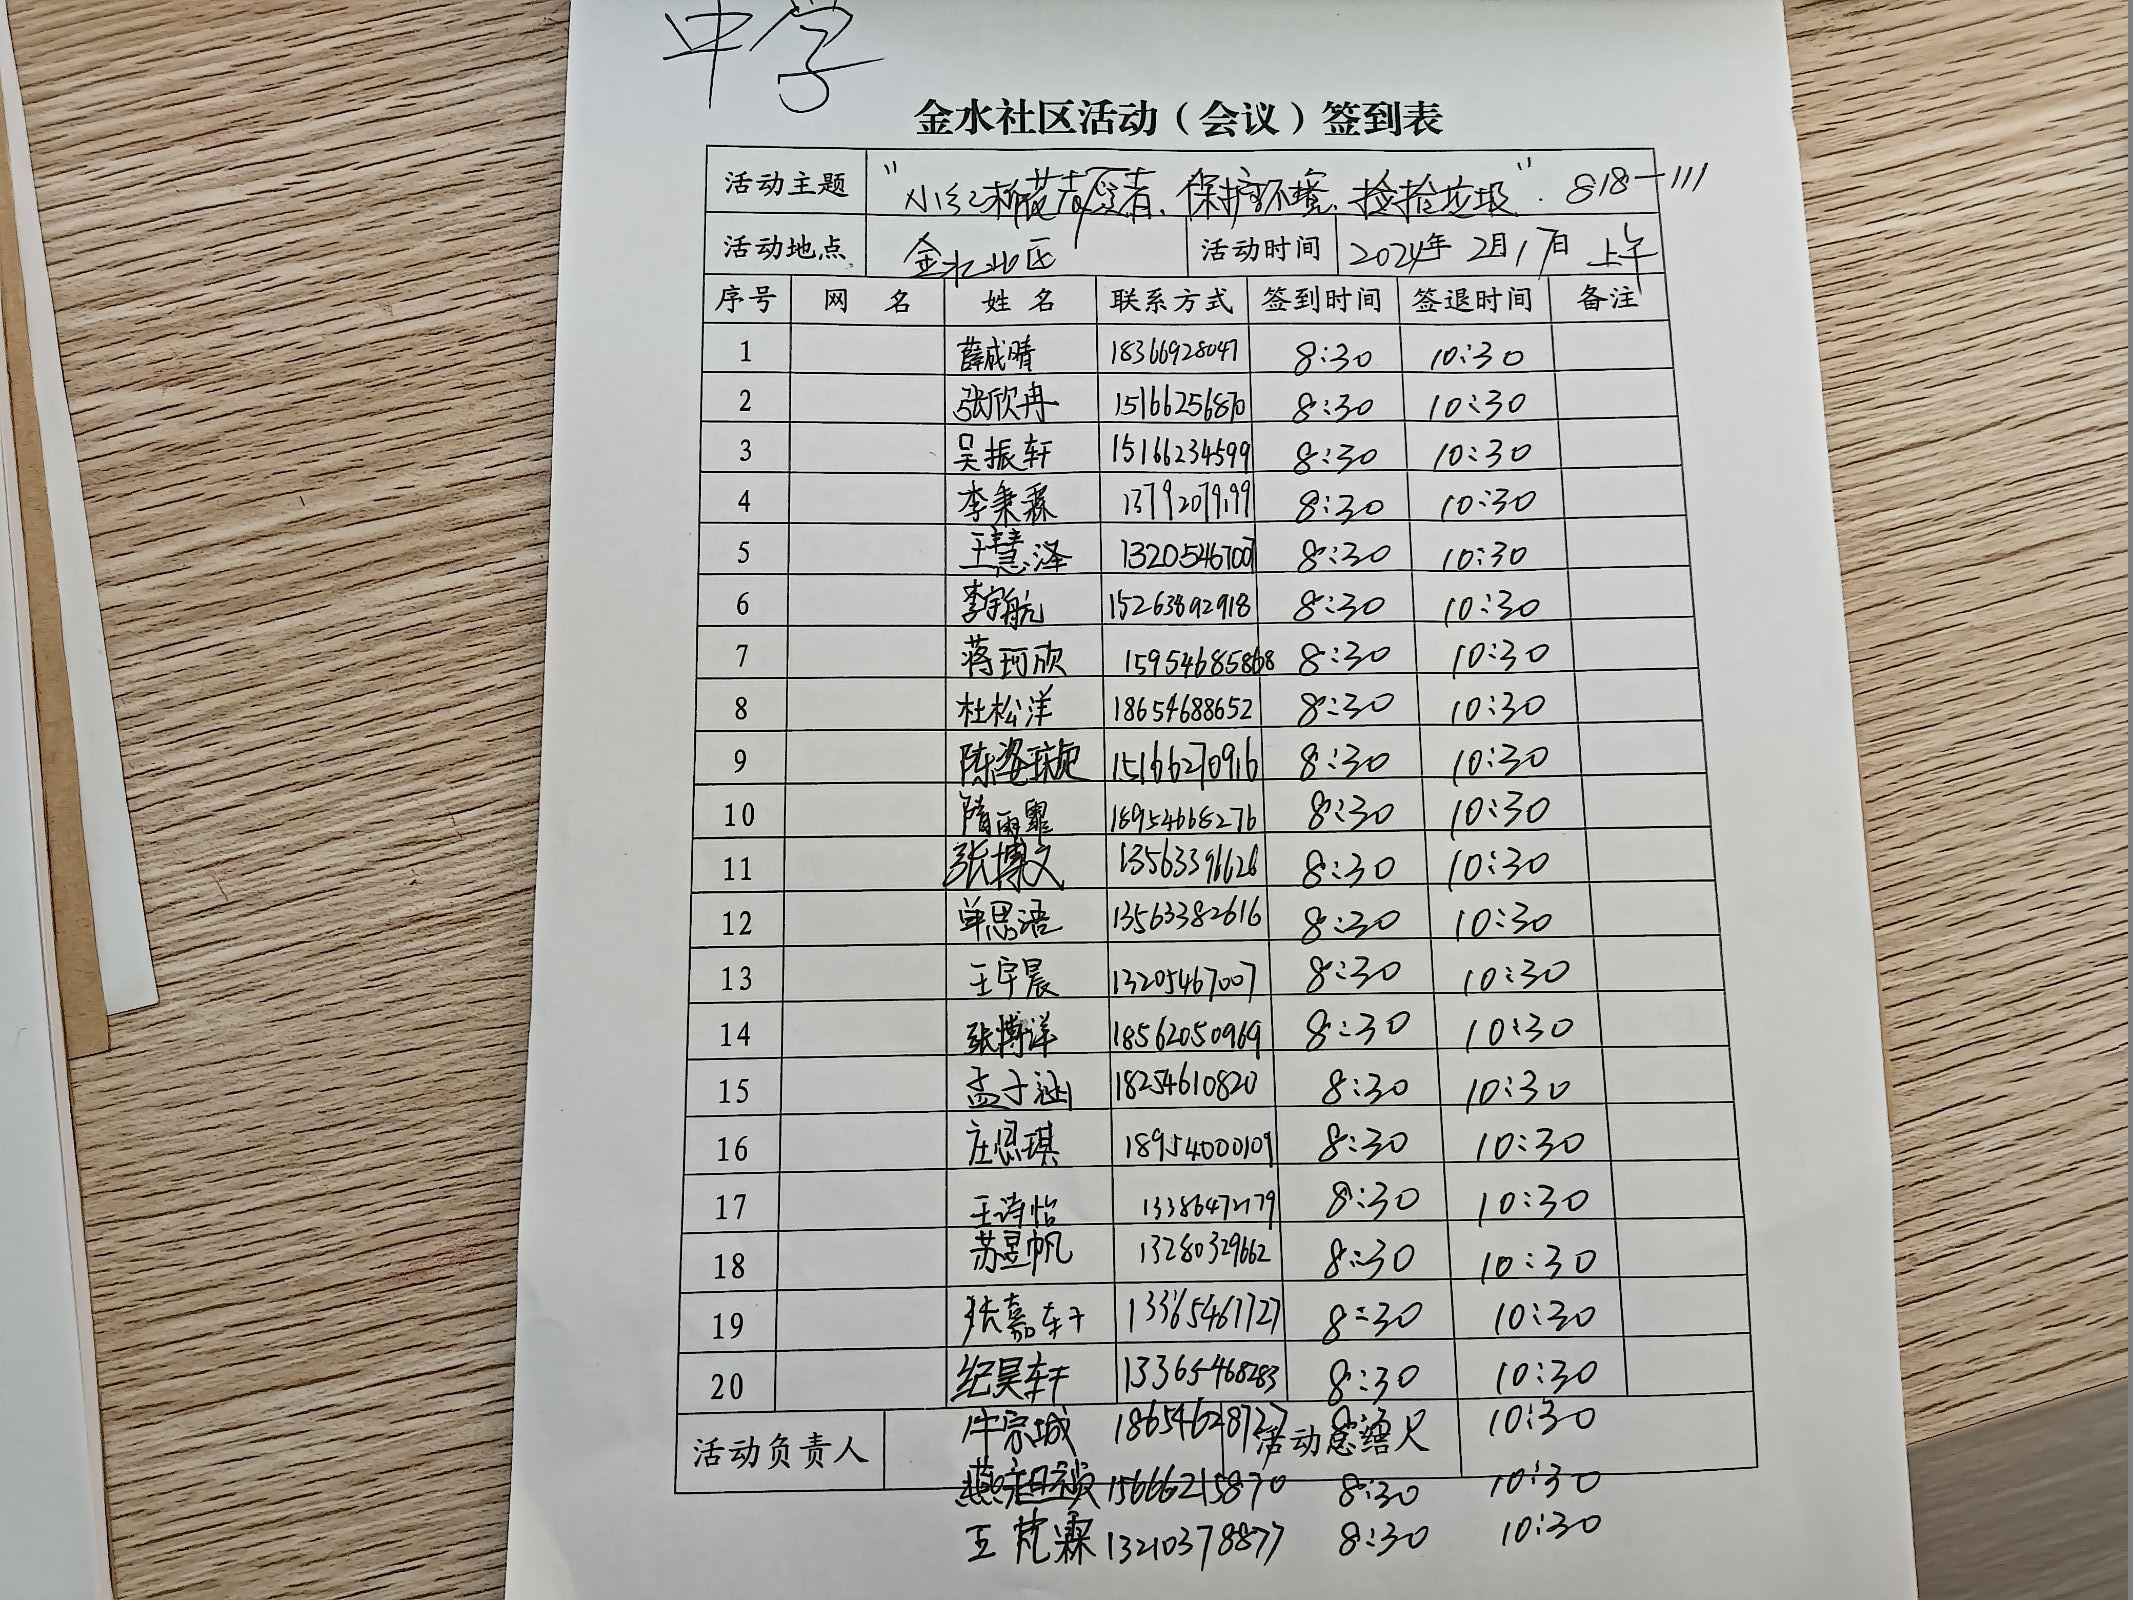 中学
金水社区活动（会议）签到表
活动主题 "小红柳花志愿者、保护环境、捡拾垃圾". 818-111
活动地点 金水社区 活动时间 2024年2月17日 上午
序号 网 名 姓 名 联系方式 签到时间 签退时间 备注
1 薛成晴 18366928047 8:30 10:30
2 张欣冉 15166256870 8:30 10:30
3 吴振轩 15166234599 8:30 10:30
4 李秉霖 13792079199 8:30 10:30
5 王慧泽 13205467007 8:30 10:30
6 李宇航 15263892918 8:30 10:30
7 蒋珂欣 15954685868 8:30 10:30
8 杜松洋 18654688652 8:30 10:30
9 陈姿璇 15166270916 8:30 10:30
10 隋雨 18954668276 8:30 10:30
11 张博文 13563396626 8:30 10:30
12 单思语 13563382616 8:30 10:30
13 王宇晨 13205467007 8:30 10:30
14 张博洋 18562050969 8:30 10:30
15 孟子涵 18254610820 8:30 10:30
16 庄恩琪 18954000109 8:30 10:30
17 王诗怡 13386472179 8:30 10:30
18 苏昱帆 13280329662 8:30 10:30
19 张嘉轩 13365461727 8:30 10:30
20 纪昊轩 13365468283 8:30 10:30
牛宗城 18654628727 8:30 10:30
活动负责人 活动总结人
燕 15666215870 8:30 10:30
王梵霖 13210378877 8:30 10:30